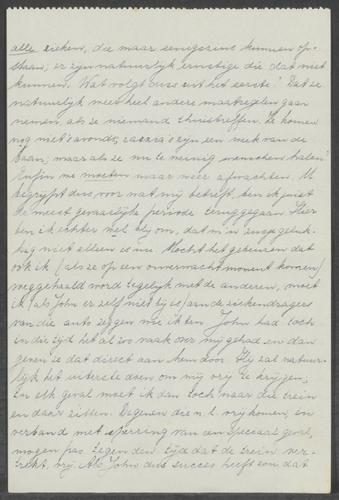 alle zieken, die maar eenigszins kunnen op-
staan; er zijn natuurlijk ernstige die dat niet
kunnen. Wat volgt ons uit het eerste? Dat ze
natuurlijk meer heel andere maatregelen gaan
nemen, als ze niemand thuistreffen. Ze komen
nog niet 's avonds, zazara's zijn een week van de
baan; maar als ze nu te weinig menschen halen?
Enfin we moeten maar weer afwachten. U
begrijpt dus, voor wat mij betreft, ben ik juist
de meest gevaarlijke periode teruggegaan. Hier
ben ik echter wel blij om, dat m'n zuster
nu niet alleen is nu. Mocht het gebeuren dat
ook ik (als ze op een onverwacht moment komen)
weggehaald word tegelijk met de anderen, moet
ik (als John er zelf niet bij is) aan de ziekendragers
van die auto zeggen wie ik ben. John had toch
in die tijd het al zoo vaak over mij gehad en dan
geven ze dat direct aan hem door. Hij zal natuur-
lijk het uiterste doen om mij vrij te krijgen;
in elk geval moet ik dan toch naar die trein
en daar zitten. Degenen die n.l. vrijkomen, in
verband met sperring van een speciaal geval,
mogen pas tegen den tijd dat de trein ver-
trekt, vrij. Als John dus succes heeft en dat